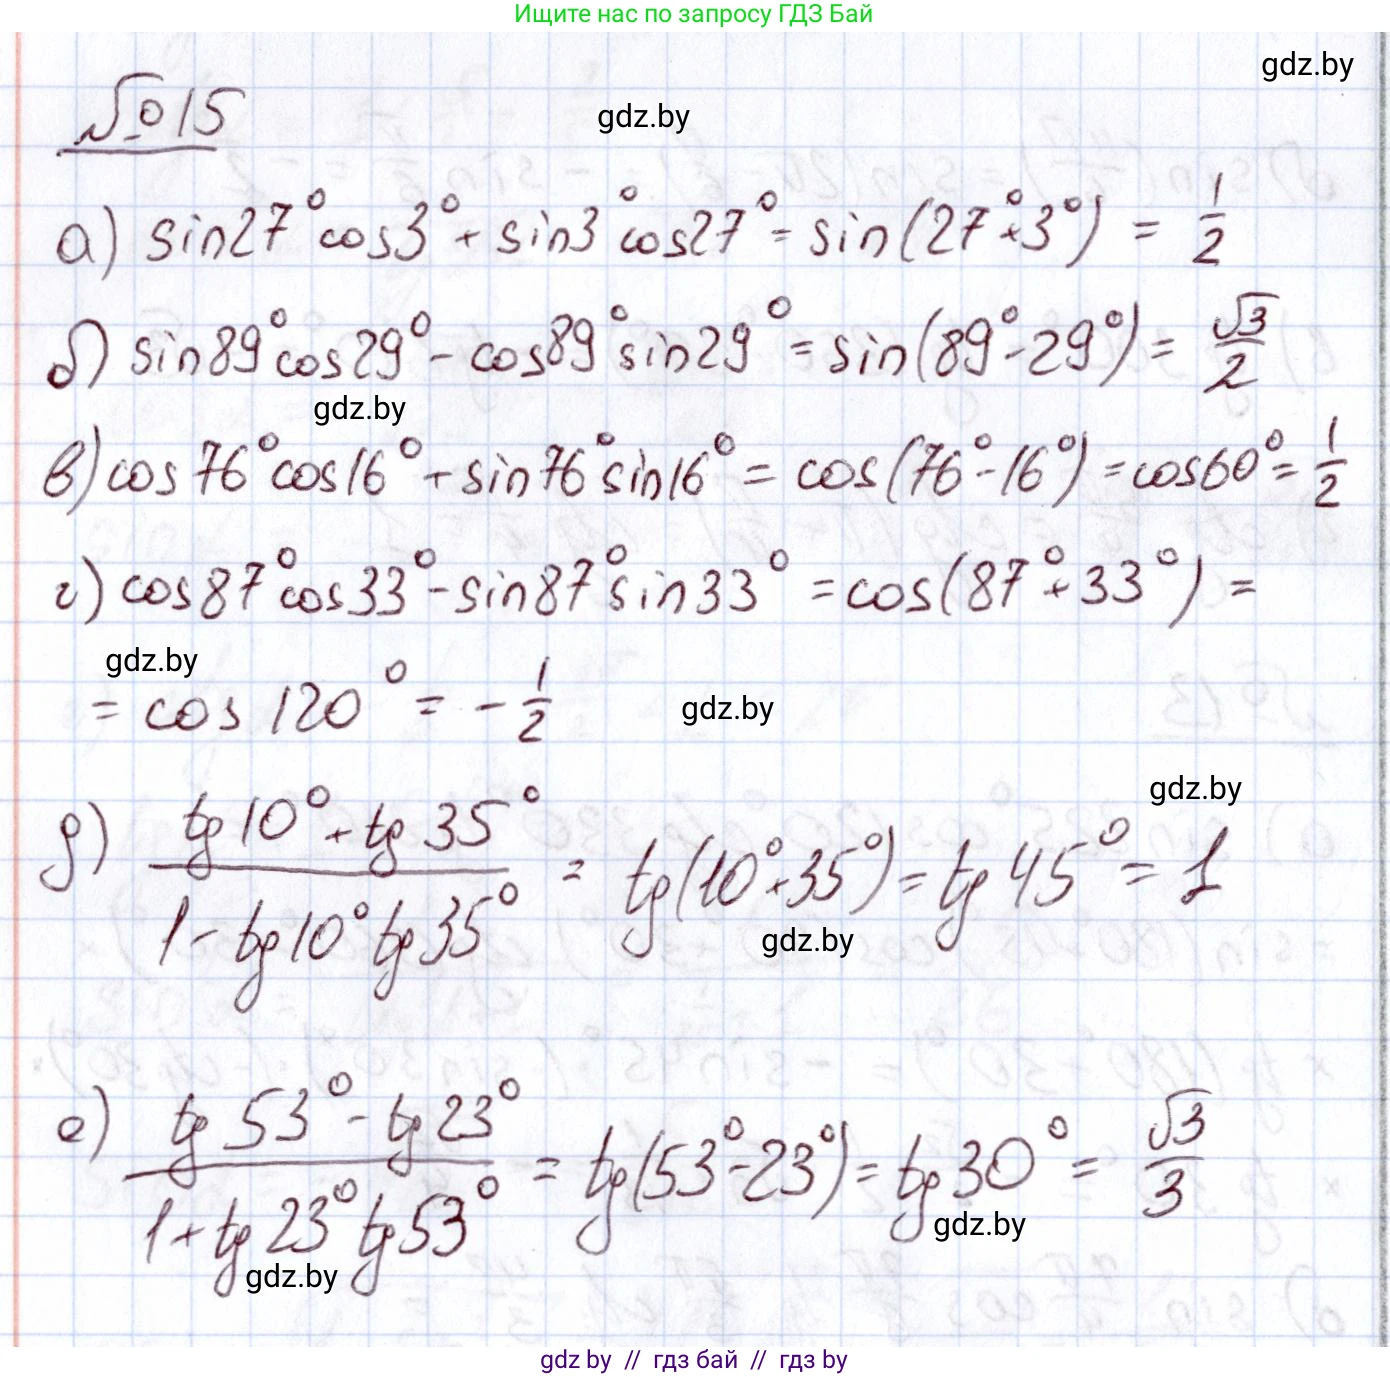 Ищите нас по запросу ГДЗ Бай
gdz.by
gdz.by
№15
а) sin27° cos3° + sin3° cos27° = sin(27°+3°) = 1/2
б) sin89° cos29° - cos89° sin29° = sin(89°-29°) = √3/2
gdz.by
в) cos76° cos16° + sin76° sin16° = cos(76°-16°) = cos60° = 1/2
г) cos87° cos33° - sin87° sin33° = cos(87°+33°) =
gdz.by
= cos 120° = - 1/2
gdz.by
gdz.by
д) (tg10° + tg35°)/(1 - tg10° tg35°) = tg(10°+35°) = tg45° = 1
gdz.by
е) (tg53° - tg23°)/(1 + tg23° tg53°) = tg(53°-23°) = tg30° = √3/3
gdz.by
gdz.by
gdz by // гдз бай // гдз by